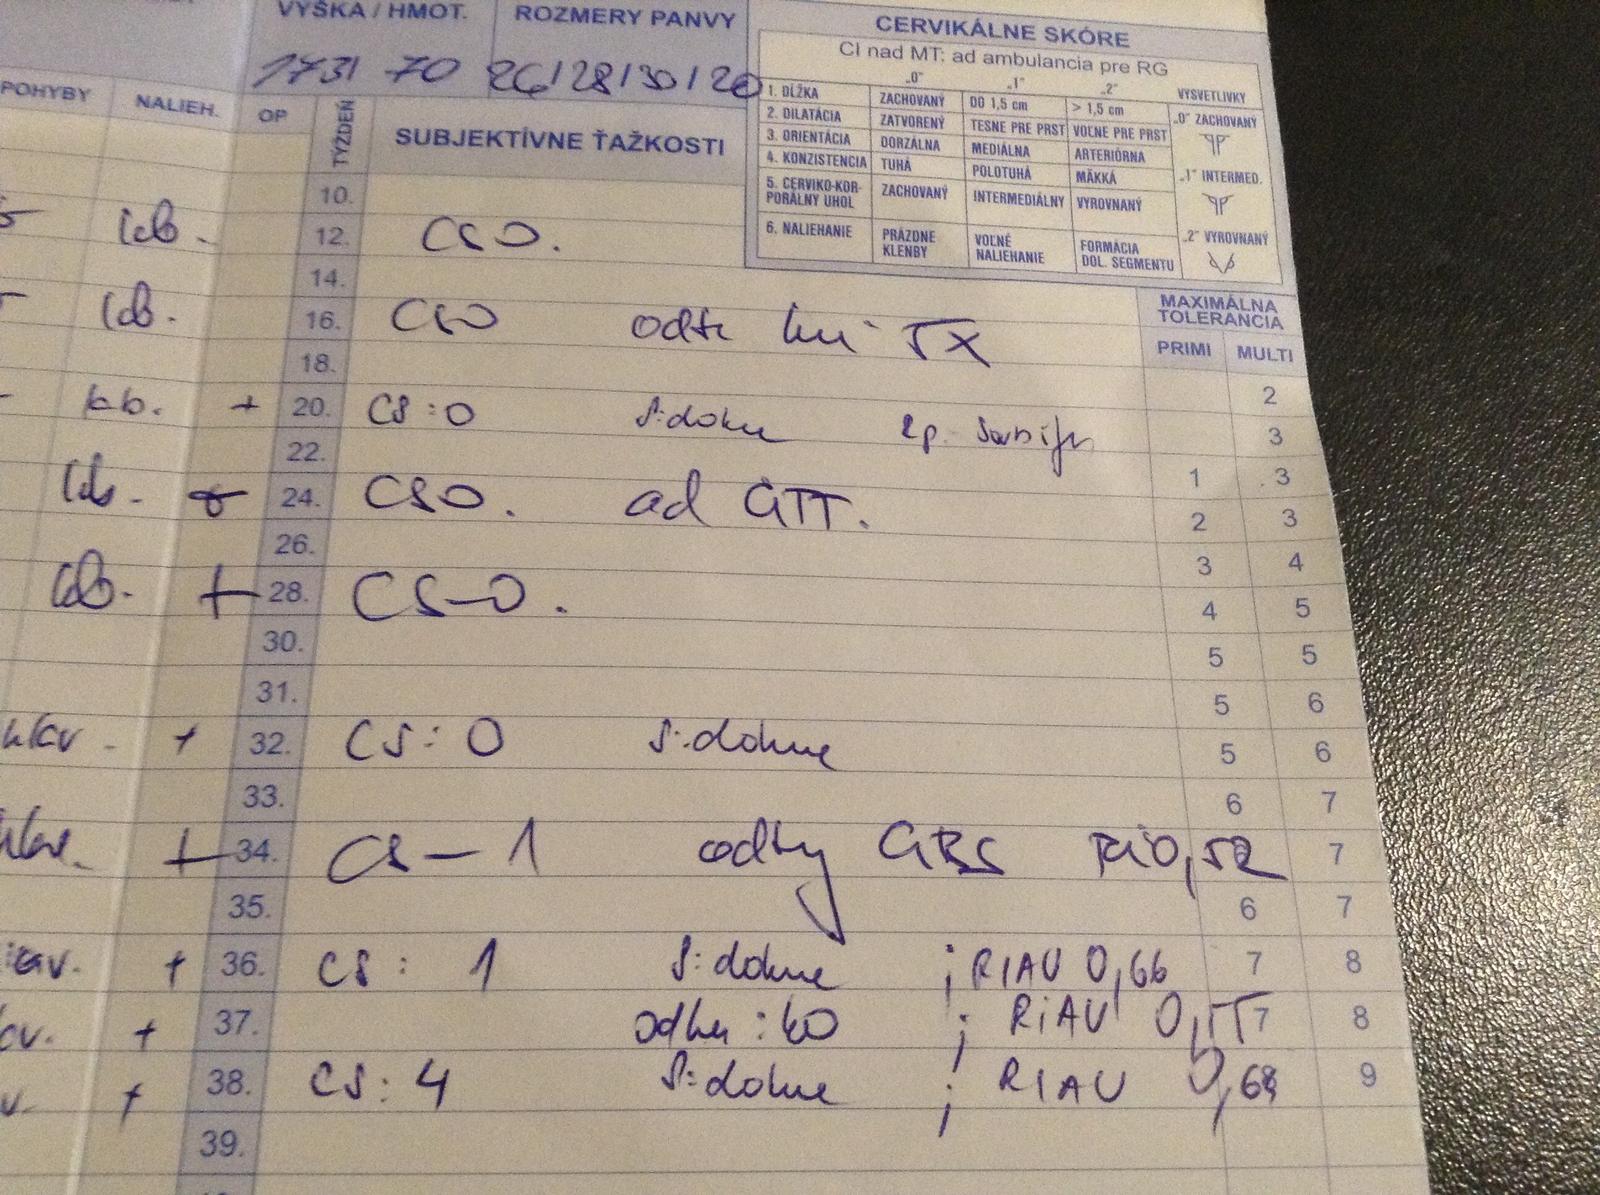 VÝŠKA / HMOT.
ROZMERY PANVY
173/ 70 26/28/30/20
CERVIKÁLNE SKÓRE
CI nad MT: ad ambulancia pre RG
„0" „1" „2" VYSVETLIVKY
1. DĹŽKA ZACHOVANÝ DO 1,5 cm > 1,5 cm
2. DILATÁCIA ZATVORENÝ TESNE PRE PRST VOĽNE PRE PRST „0" ZACHOVANÝ
3. ORIENTÁCIA DORZÁLNA MEDIÁLNA ARTERIÓRNA
4. KONZISTENCIA TUHÁ POLOTUHÁ MÄKKÁ „1" INTERMED.
5. CERVIKO-KOR-
PORÁLNY UHOL ZACHOVANÝ INTERMEDIÁLNY VYROVNANÝ
6. NALIEHANIE PRÁZDNE
KLENBY VOĽNÉ
NALIEHANIE FORMÁCIA
DOL. SEGMENTU „2" VYROVNANÝ
POHYBY NALIEH. OP TÝŽDEŇ SUBJEKTÍVNE ŤAŽKOSTI
MAXIMÁLNA
TOLERANCIA
PRIMI MULTI
10.
12. CSO.
14.
16. CSO
18. 2
+ 20. CS:0 S:dolne 3
22. 1 3
24. CSO. ad GTT. 2 3
26. 3 4
+ 28. CS-0. 4 5
30. 5 5
31. 5 6
+ 32. CS:0 S:dolne 5 6
33. 6 7
+ 34. CS-1 GBS 0,52 7
35. 6 7
+ 36. CS: 1 S:dolne ; RIAU 0,66 7 8
+ 37. ; RIAU 7 8
+ 38. CS:4 S:dolne ; RIAU 9
39.